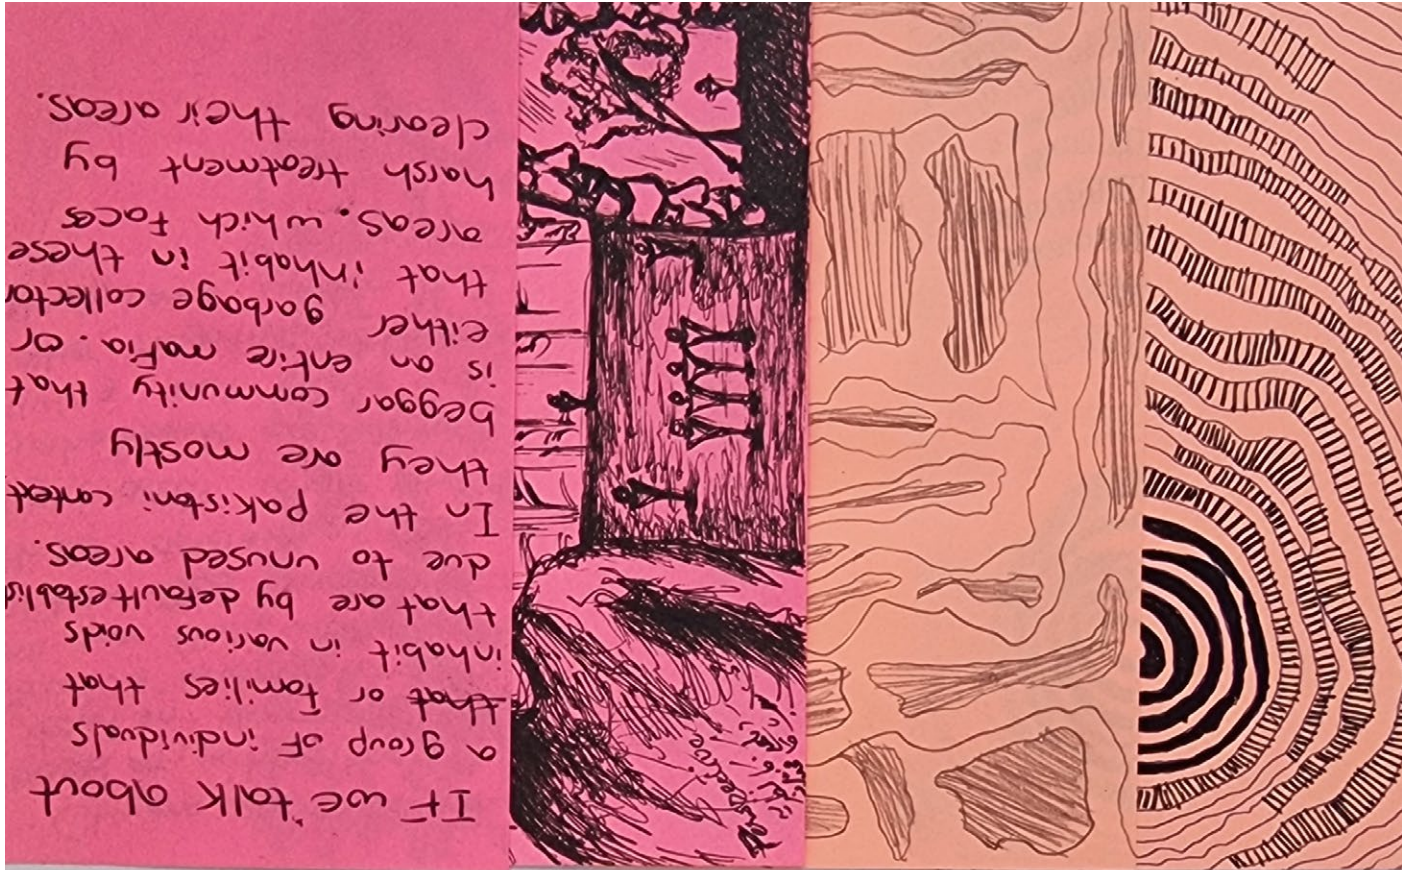 If we talk about
a group of individuals
that or families that
inhabit in various voids
that are by default establis
due to unused areas.
In the pakistani context
they are mostly
beggar community that
is an entire mafia. or
either garbage collector
that inhabit in these
areas. which faces
harsh treatment by
clearing their areas.
Perspective